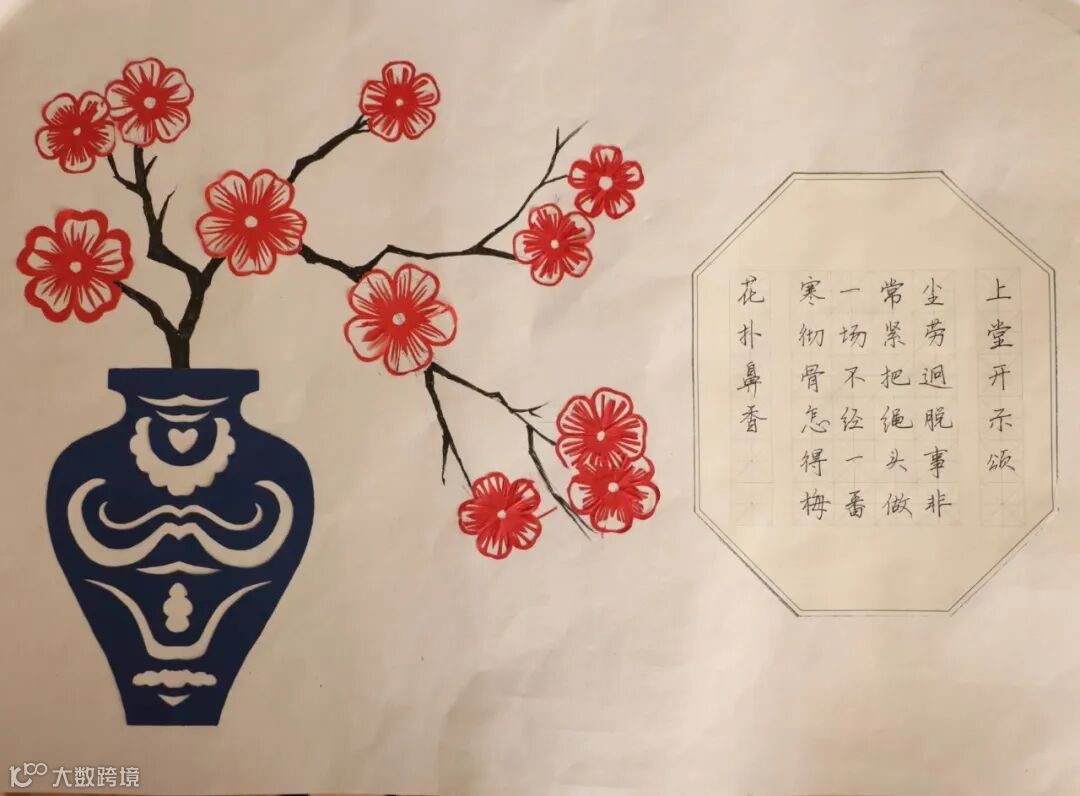 上堂开示颂
尘劳迥脱事非
常紧把绳头做
一场不经一番
寒彻骨怎得梅
花扑鼻香
大数跨境